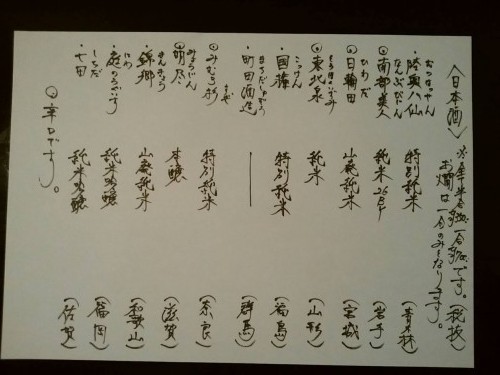 〈日本酒〉 (税抜)
お燗は一合のみとなります。
むつはっせん
・陸奥八仙 特別純米 (青森)
なんぶびじん
◎南部美人 純米 (岩手)
ひわた
◎日輪田 山廃純米 (宮城)
とうほくいずみ
◎東北泉 純米 (山形)
こっけん
・国権 特別純米 (福島)
まちだしゅぞう
・町田酒造 (群馬)
◎みむろ杉 特別純米 (奈良)
◎ 本醸 (滋賀)
・錦郷 山廃純米 (和歌山)
にわ
・庭のうぐいす 純米吟醸 (福岡)
しちだ
・七田 純米吟醸 (佐賀)
◎辛口です。